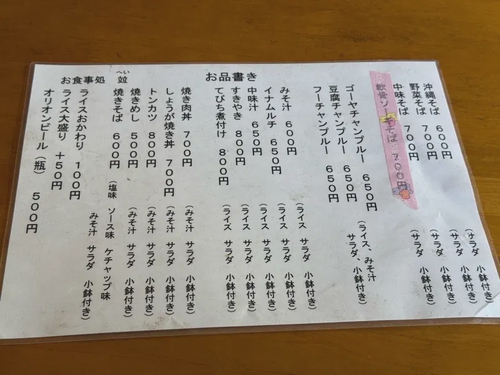 お品書き
沖縄そば 600円 (サラダ 小鉢付き)
野菜そば 700円 (サラダ 小鉢付き)
中味そば 700円 (サラダ 小鉢付き)
軟骨ソーキそば 700円 (サラダ 小鉢付き)
ゴーヤチャンプルー 650円 (ライス、みそ汁
豆腐チャンプルー 650円 サラダ、小鉢付き)
フーチャンプルー 650円
みそ汁 600円 (ライス サラダ 小鉢付き)
イナムルチ 650円 (ライス サラダ 小鉢付き)
中味汁 650円 (ライス サラダ 小鉢付き)
すきやき 800円 (ライス サラダ 小鉢付き)
てびち煮付け 800円 (ライス サラダ 小鉢付き)
焼き肉丼 700円 (みそ汁 サラダ 小鉢付き)
しょうが焼き丼 700円 (みそ汁 サラダ 小鉢付き)
トンカツ 800円 (みそ汁 サラダ 小鉢付き)
焼きめし 500円 (みそ汁 サラダ 小鉢付き)
焼きそば 600円 (塩味 ソース味 ケチャップ味
みそ汁 サラダ 小鉢付き)
ライスおかわり 100円
ライス大盛り +50円
オリオンビール(瓶) 500円
お食事処
へい